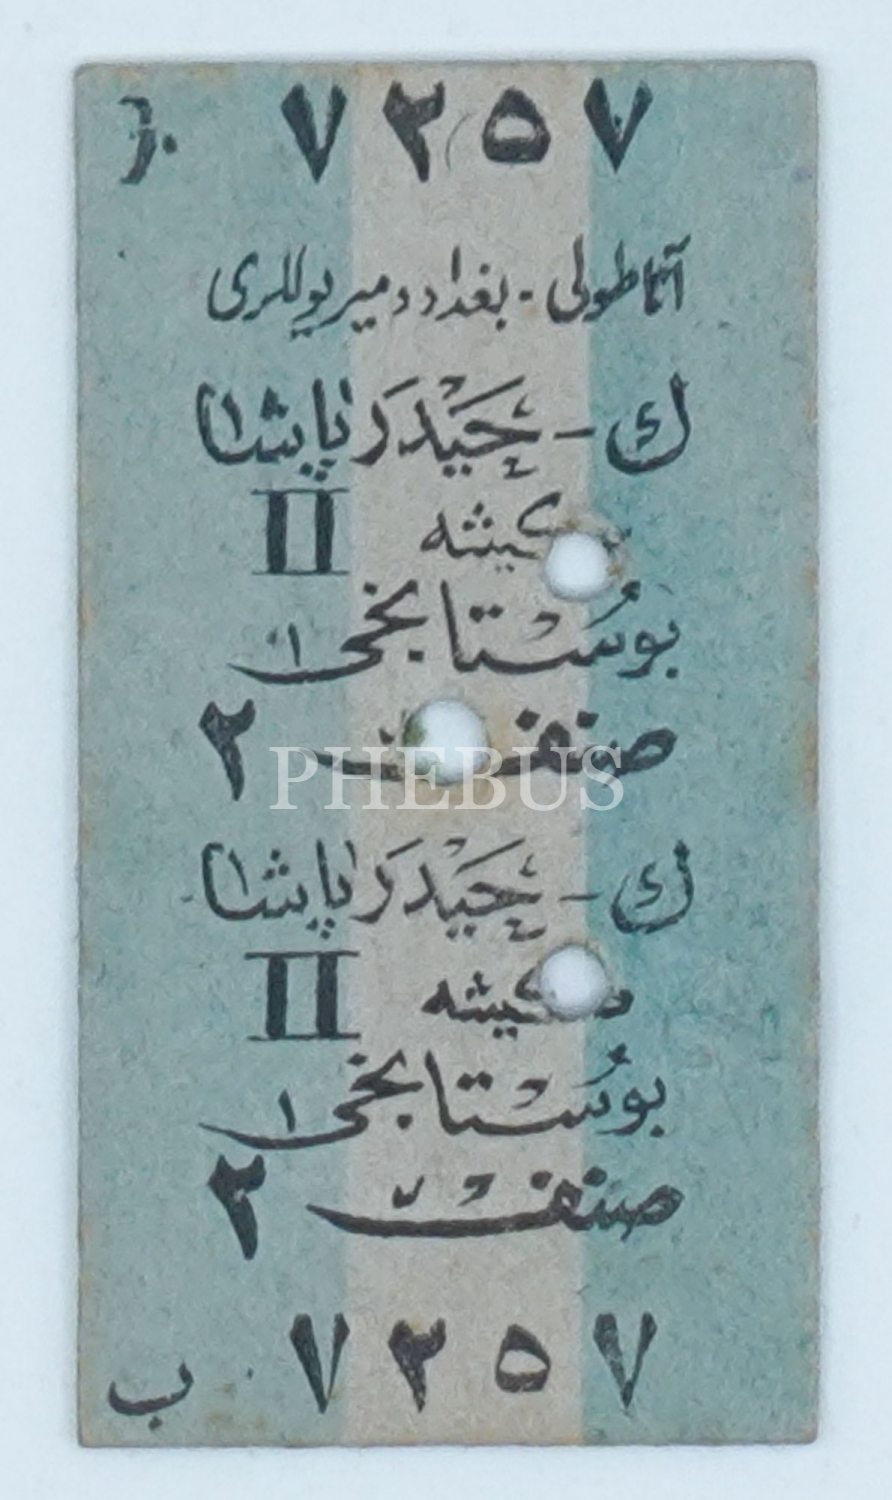 ٧٢٥٧
آناطولی - بغداد دمیریوللری
ك - حیدرپاشا
II
بوستانجی ١
صنف ٢
PHEBUS
ك - حیدرپاشا
II
بوستانجی ١
صنف ٢
٧٢٥٧
ب